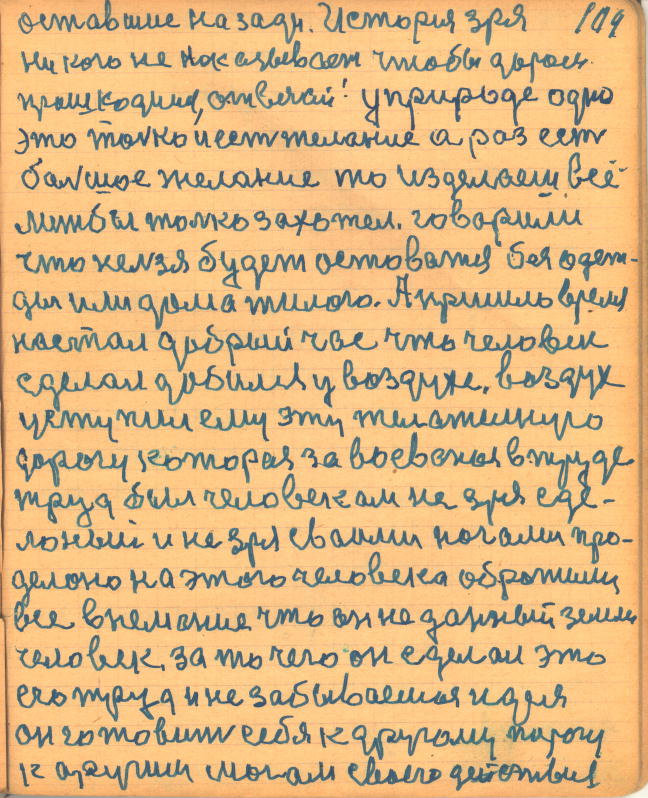 оставшие назади. История зря 109
никого не показывает чтобы дороги
прашкодили, отвячай! у природе одно
это толко и есть желание а раз есть
балшое желание то изделаеш всё
лиш бы толко захотел. говорили
что нелзя будет остоватся бея одеж-
ды или дома жилого. А пришло время
настал добрый час что человек
сделал добился у воздухе, воздух
уступил ему эту
дорогу которая завоевоная в труде
труд был человекам не зря сде-
лоный и не зря сваими ногами про-
делоно на этого человека обротили
все внемание что он не данный земли
человек, за то чего он сделал это
его труд и не забываемая идея
он готовить себя к другому порогу
к другим своего действия